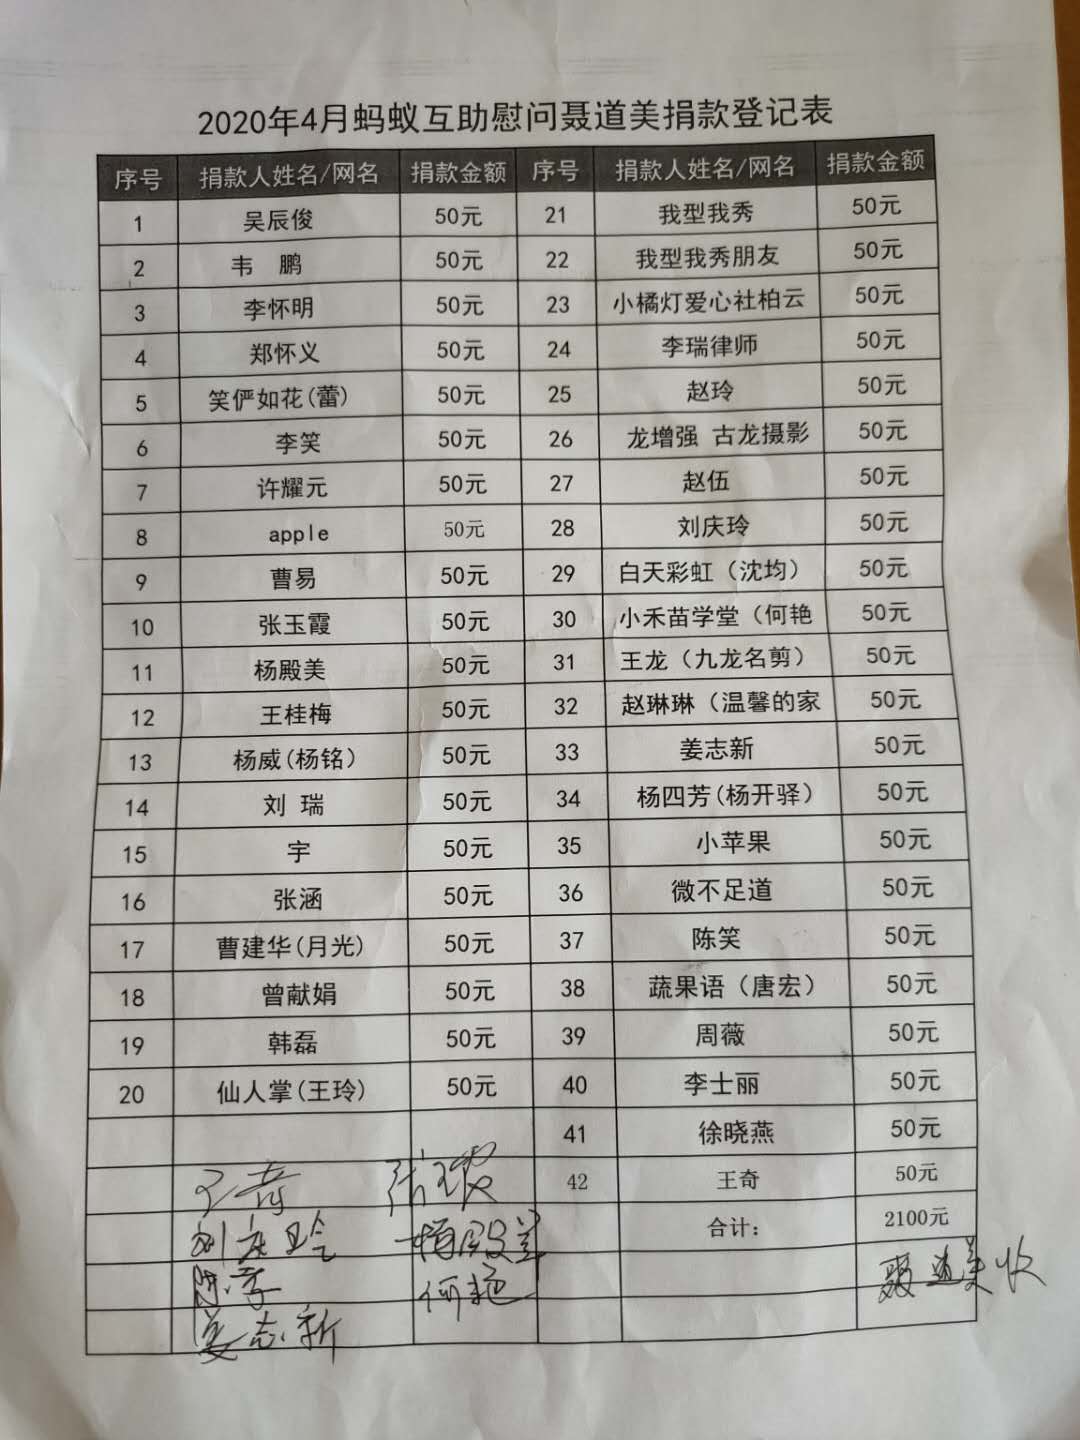 2020年4月蚂蚁互助慰问聂道美捐款登记表
序号 捐款人姓名/网名 捐款金额 序号 捐款人姓名/网名 捐款金额
1 吴辰俊 50元 21 我型我秀 50元
2 韦 鹏 50元 22 我型我秀朋友 50元
3 李怀明 50元 23 小橘灯爱心社柏云 50元
4 郑怀义 50元 24 李瑞律师 50元
5 笑俨如花(蕾) 50元 25 赵玲 50元
6 李笑 50元 26 龙增强 古龙摄影 50元
7 许耀元 50元 27 赵伍 50元
8 apple 50元 28 刘庆玲 50元
9 曹易 50元 29 白天彩虹（沈均） 50元
10 张玉霞 50元 30 小禾苗学堂（何艳 50元
11 杨殿美 50元 31 王龙（九龙名剪） 50元
12 王桂梅 50元 32 赵琳琳（温馨的家 50元
13 杨威(杨铭） 50元 33 姜志新 50元
14 刘 瑞 50元 34 杨四芳(杨开驿） 50元
15 宇 50元 35 小苹果 50元
16 张涵 50元 36 微不足道 50元
17 曹建华(月光) 50元 37 陈笑 50元
18 曾献娟 50元 38 蔬果语（唐宏） 50元
19 韩磊 50元 39 周薇 50元
20 仙人掌(王玲) 50元 40 李士丽 50元
41 徐晓燕 50元
王奇 张玉霞 42 王奇 50元
刘庆玲 杨殿美 合计： 2100元
何艳 聂道美收
姜志新